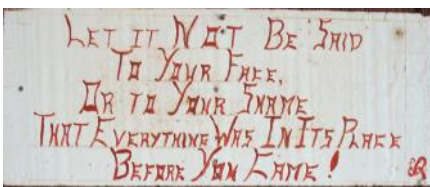 LET IT NOT BE SAID
TO YOUR FACE,
OR TO YOUR SHAME
THAT EVERYTHING WAS IN ITS PLACE
BEFORE YOU CAME!